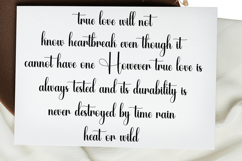 true love will not
know heartbreak even though it
cannot have one However true love is
always tested and its durability is
never destroyed by time rain
heat or wild